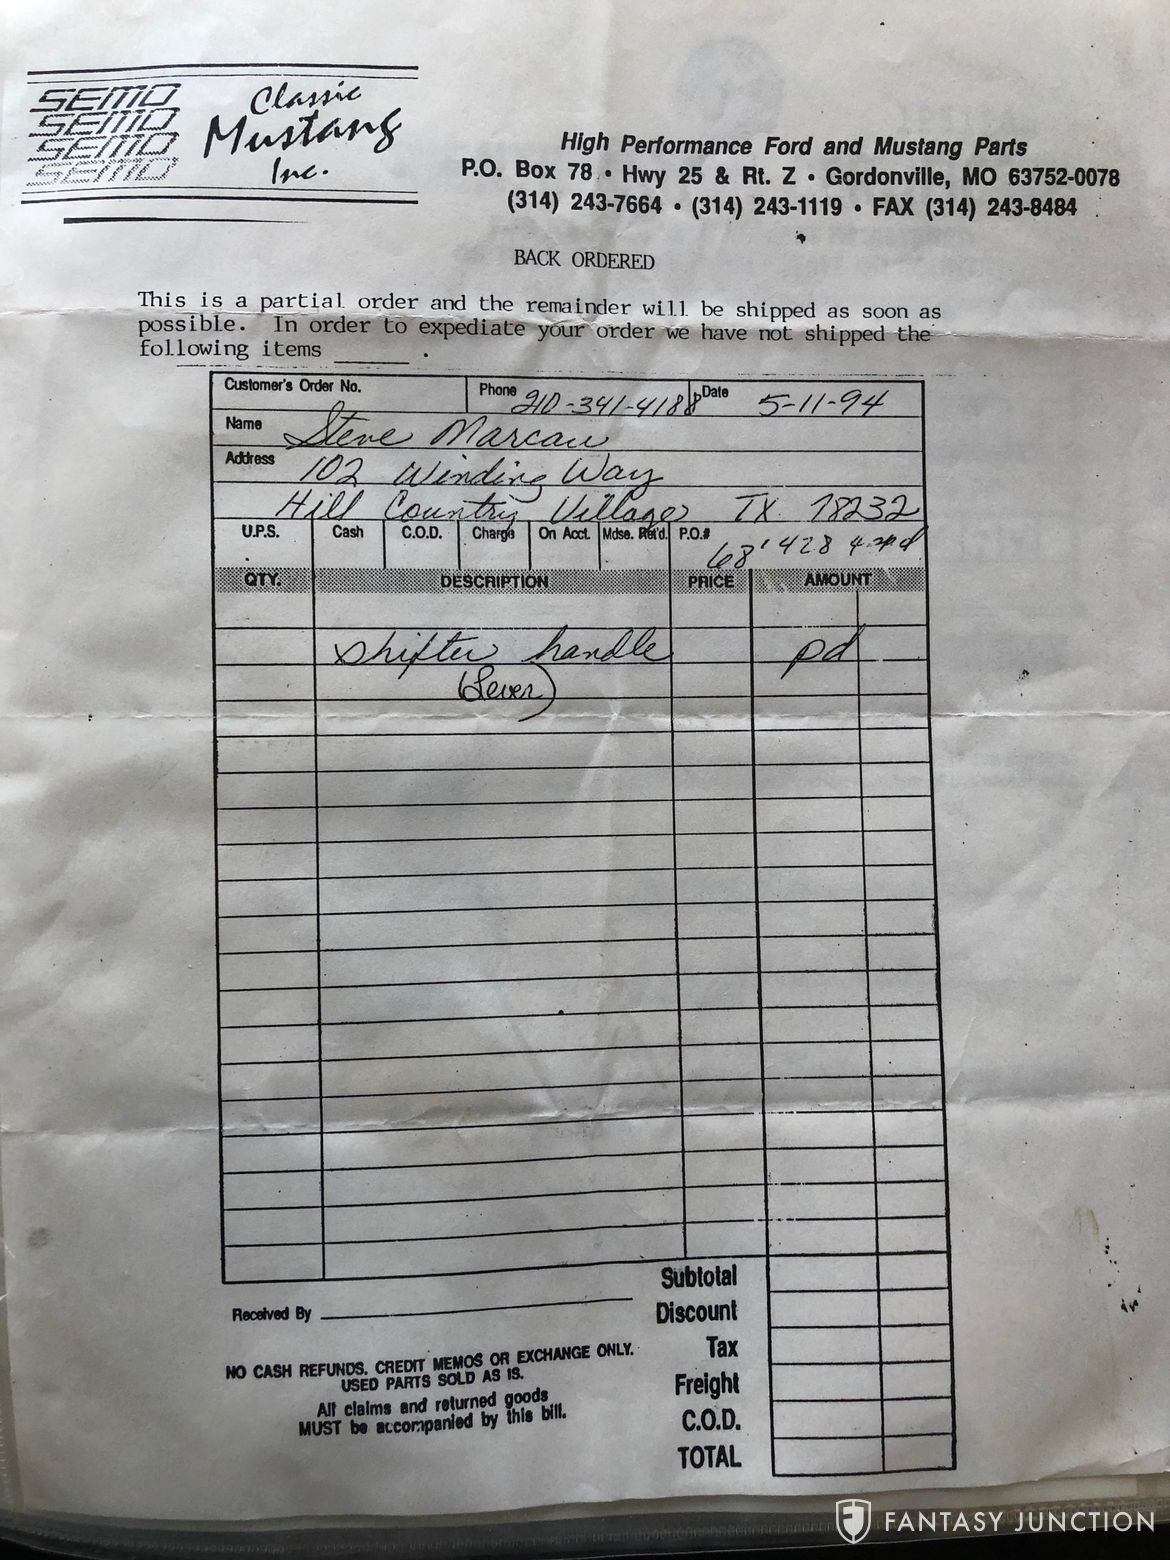 SEMO
SEMO
SEMO
SEMO
Classic
Mustang
Inc.
High Performance Ford and Mustang Parts
P.O. Box 78 • Hwy 25 & Rt. Z • Gordonville, MO 63752-0078
(314) 243-7664 • (314) 243-1119 • FAX (314) 243-8484
BACK ORDERED
This is a partial order and the remainder will be shipped as soon as
possible. In order to expediate your order we have not shipped the
following items ______ .
Customer's Order No. Phone 210-341-4188 Date 5-11-94
Name Steve Marcau
Address 102 Winding Way
Hill Country Village TX 78232
U.P.S. Cash C.O.D. Charge On Acct. Mdse. Ret'd. P.O.# 68' 428 4 spd
QTY. DESCRIPTION PRICE AMOUNT
shifter handle pd
(Lever)
Subtotal
Received By
Discount
Tax
NO CASH REFUNDS. CREDIT MEMOS OR EXCHANGE ONLY.
USED PARTS SOLD AS IS.
Freight
All claims and returned goods
MUST be accompanied by this bill.
C.O.D.
TOTAL
FANTASY JUNCTION